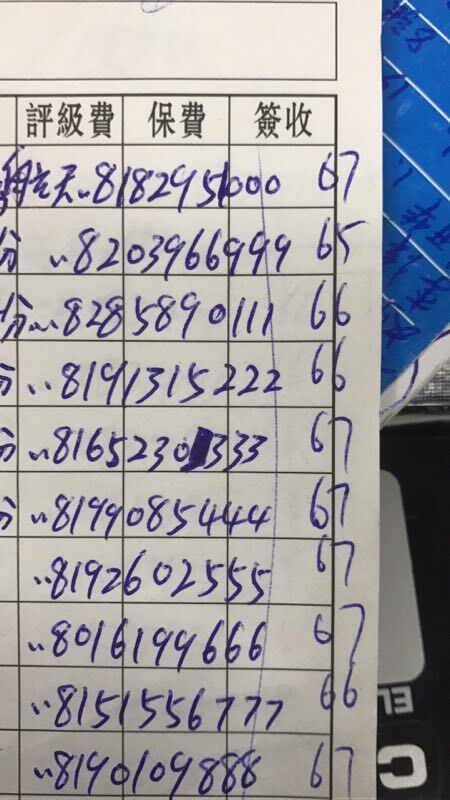 評級費 保費 簽收
航天..8182951000 67
分 ..8203966999 65
分...8285890111 66
..8191315222 66
分 ..8165230333 67
分 ..8199085444 67
..8192602555 67
..8016199666 67
..8151556777 66
..8190109888 67
EL
C